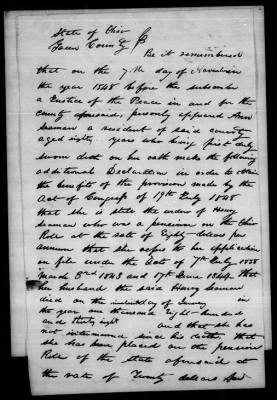 State of Ohio
County }
Be it remembered
that on the 7th day of November
the year 1848 before the subscriber
a Justice of the Peace in and for the
county aforesaid, personly appeared Ann
Seaman a resident of said county
aged eighty years who being first duly
sworn doth on her oath make the following
additional Declaration in order to obtain
the benefits of the provision made by the
Act of Congress of 19th July 1848
that she is still the widow of Henry
Seaman who was a pensioner on the Ohio
Roll at the rate of Eighty dollars per
annum that she refers to her application
on file under the Acts of 7th July 1838
March 3rd 1843 and 17th June 1844 that
her husband the said Henry Seaman
died on the day of in
the year one thousand Eight hundred
and thirty eight and that she has
not intermarried since his death that
she has been placed on the pension
Roll of the state aforesaid at
the rate of Twenty dollars